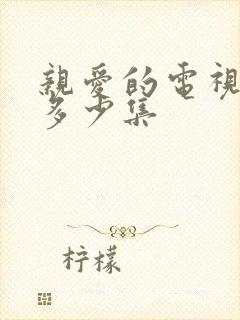 親愛的電視
多少集
柠檬